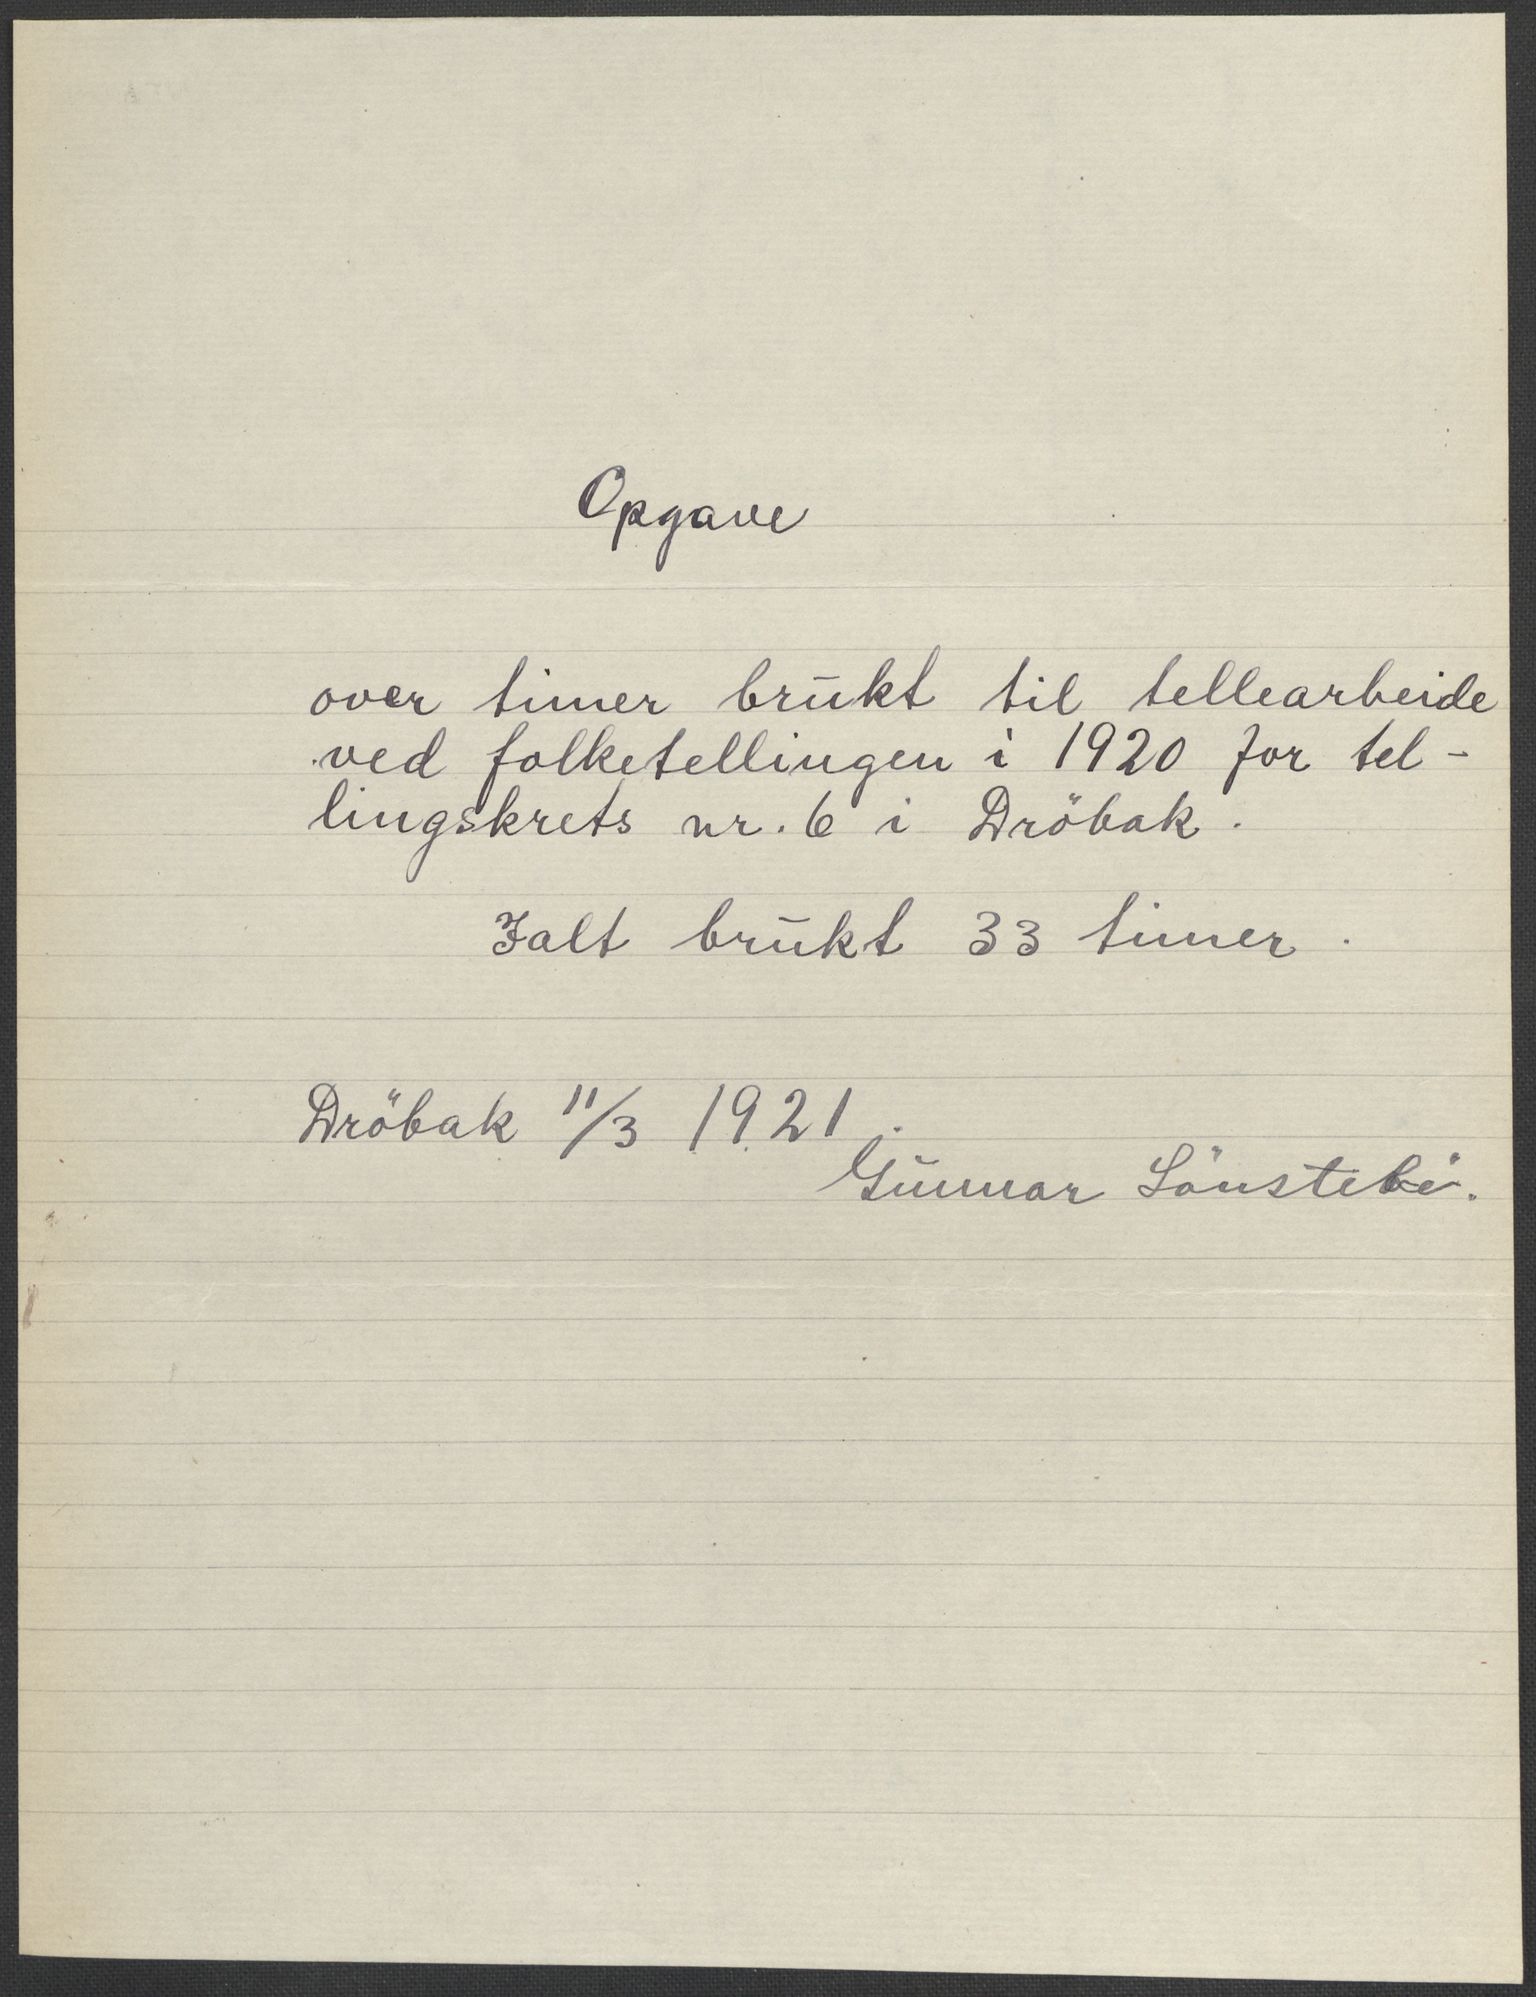 Opgave
over timer brukt til tellearbeide
ved folketellingen i 1920 for tel-
lingskrets nr. 6 i Dröbak.
Ialt brukt 33 timer.
Dröbak 11/3 1921.
Gunnar Lönstebö.